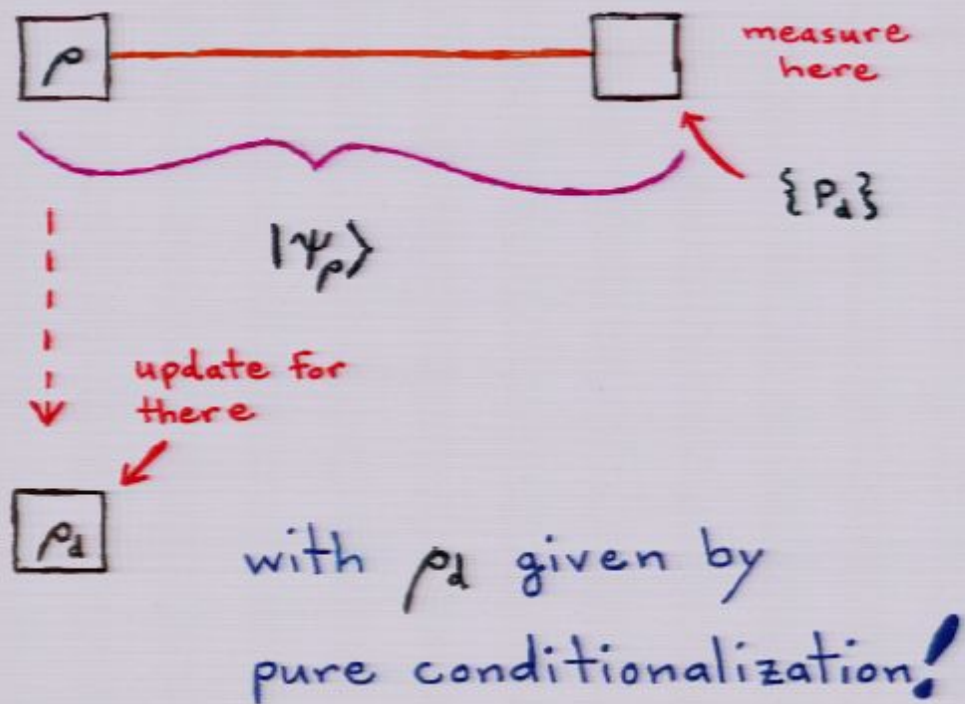 ρ
measure
here
{P_d}
|ψ_ρ⟩
update for
there
ρ_d
with ρ_d given by
pure conditionalization!